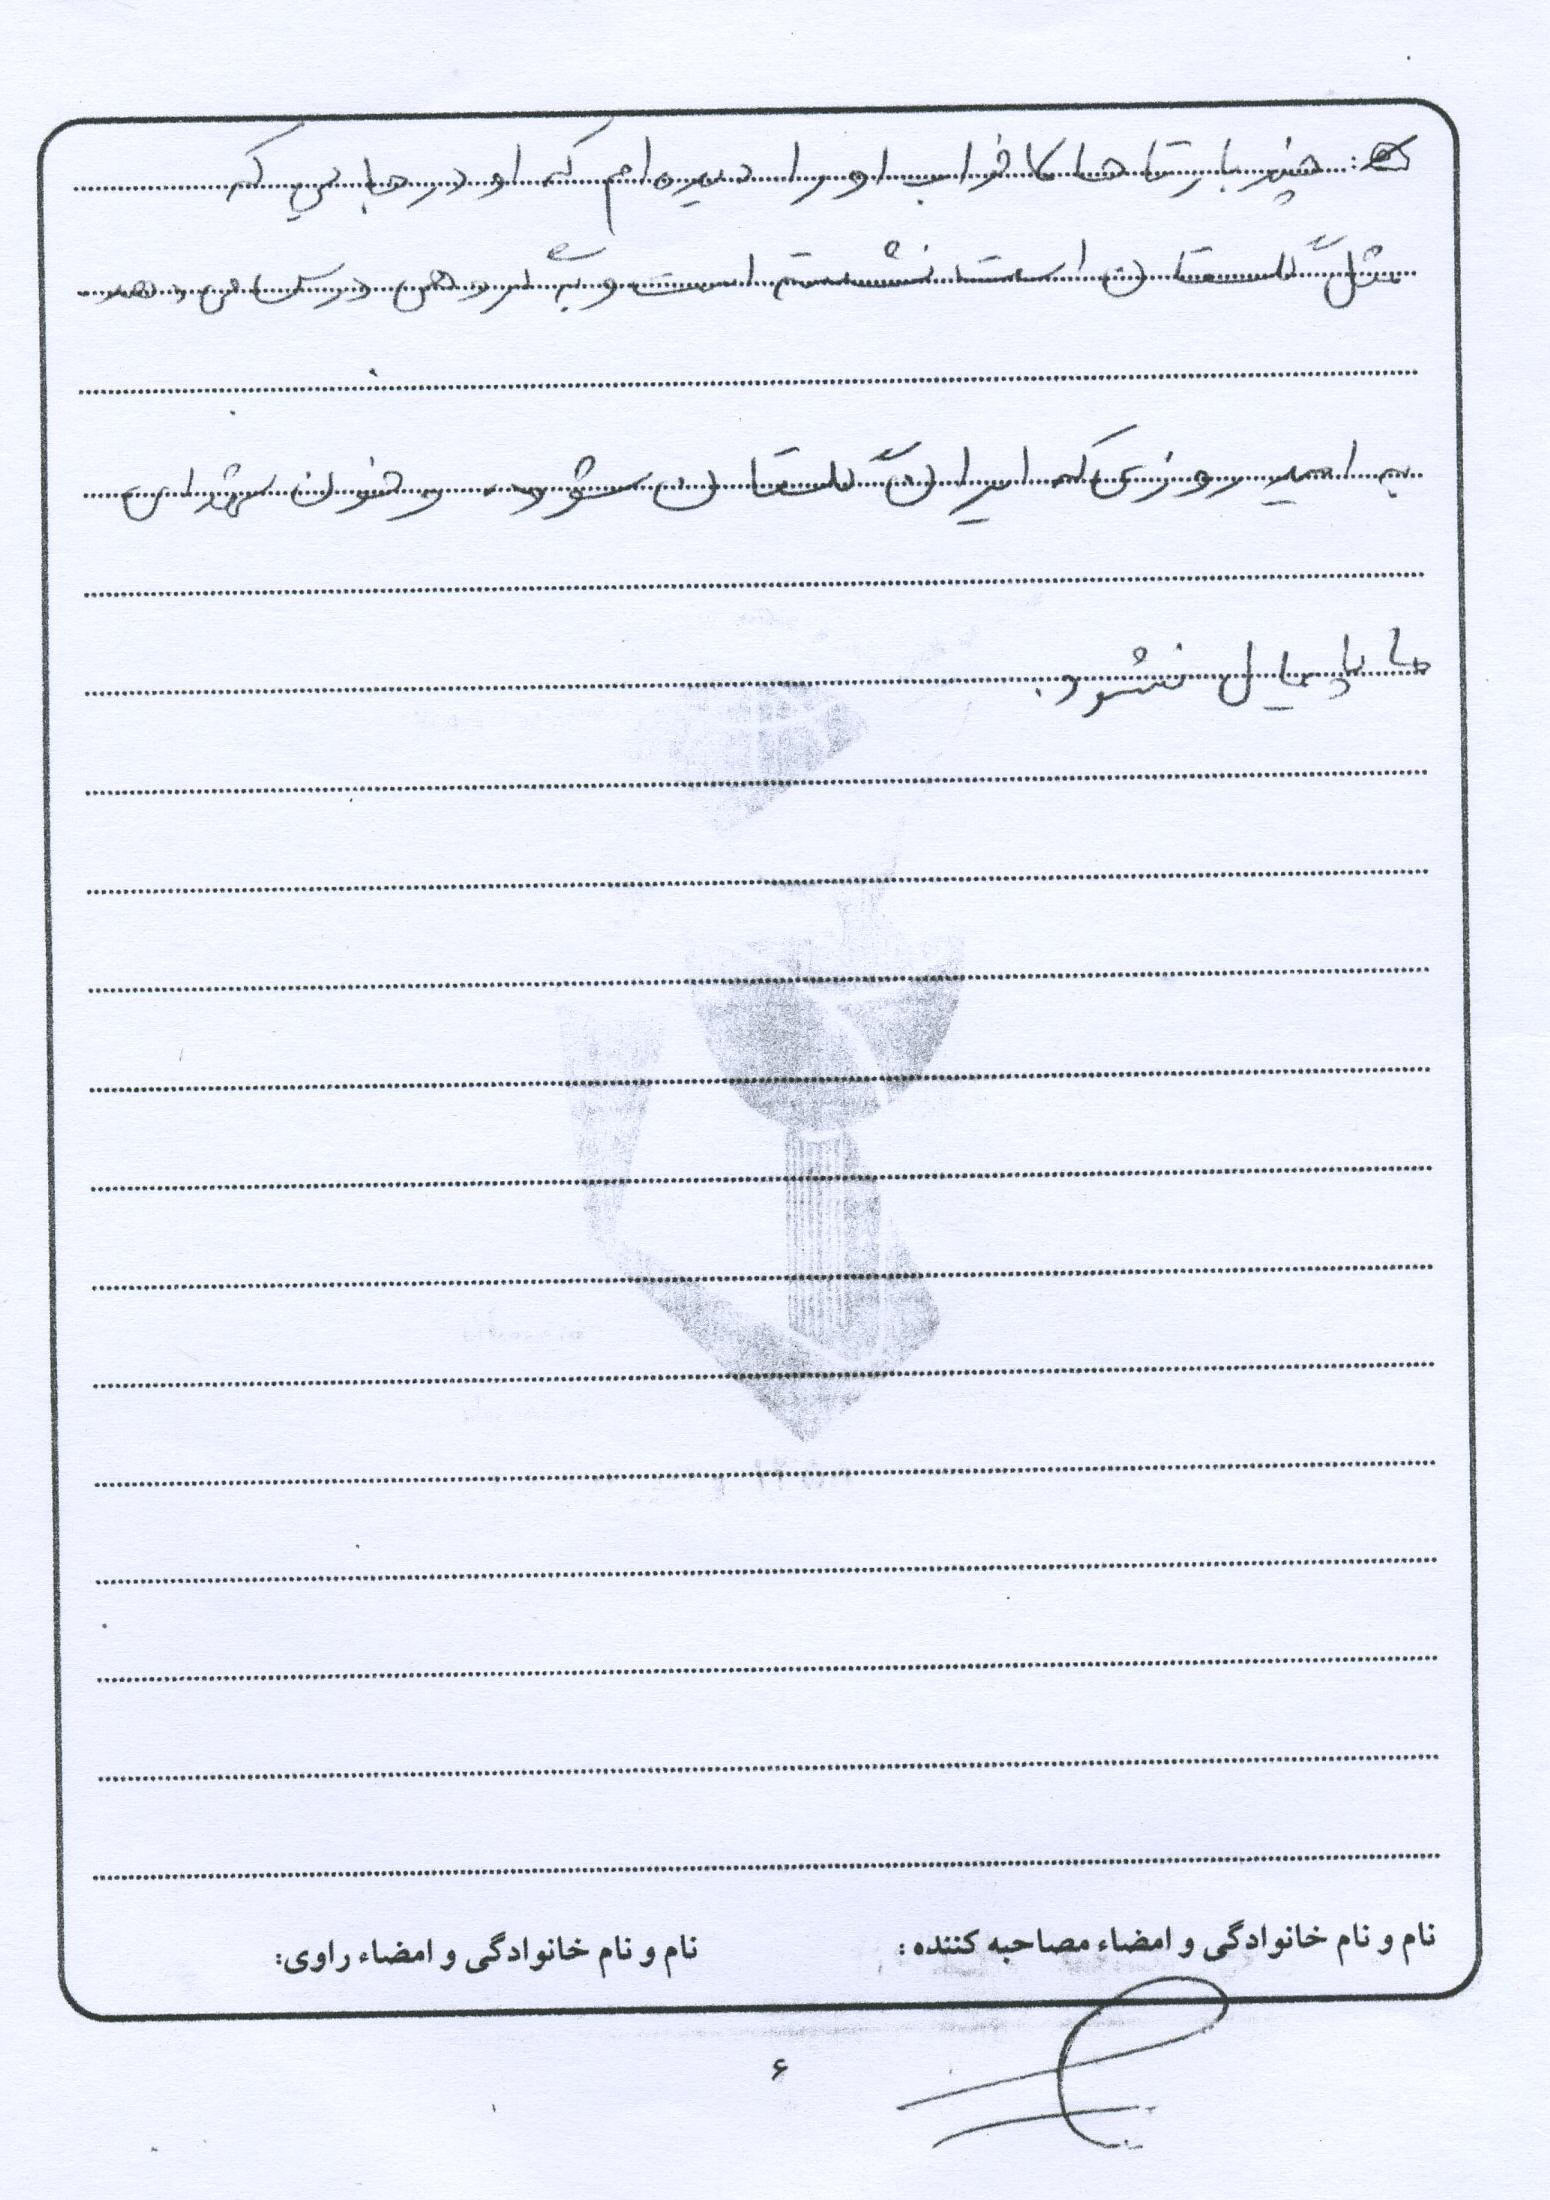 چند بار تا حالا خواب او را دیده ام که او در جایی که
مثل گلستان است نشسته است و به مردهی درس می دهد
به امید روزی که ایران گلستان شود و خون شهدای
ما پایمال نشود.
نام و نام خانوادگی و امضاء مصاحبه کننده: نام و نام خانوادگی و امضاء راوی:
۶